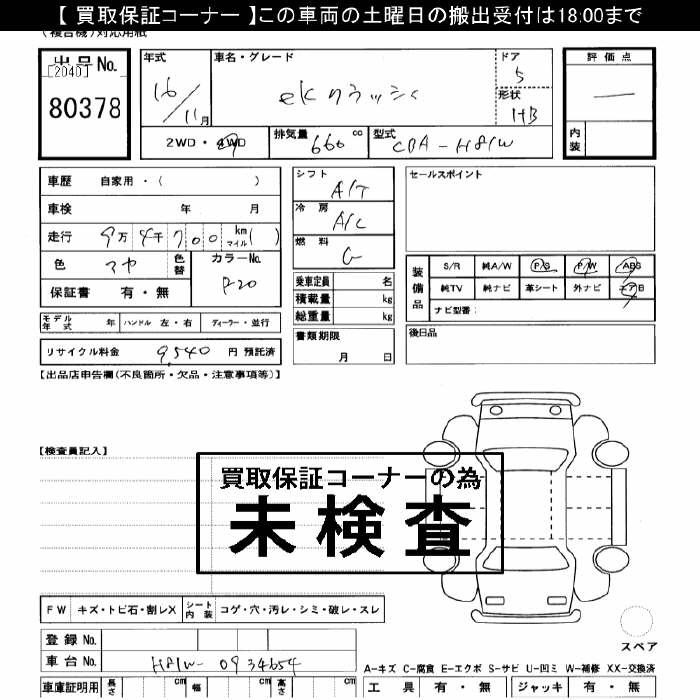 【 買取保証コーナー 】この車両の土曜日の搬出受付は18:00まで
(複合機)対応用紙
出品No.
[2040]
80378
年式
16/11月
車名・グレード
ekクラッシィ
ドア
5
形状
HB
評価点
—
内装
2WD・4WD
排気量 660 cc
型式 CBA-H81W
車歴 自家用・( )
車検 年 月
走行 9万4千700 km マイル( )
色
色替
カラーNo.
P20
保証書 有・無
モデル年式 年 ハンドル 左・右 ディーラー・並行
リサイクル料金 9,540 円 預託済
シフト A/T
冷房 A/C
燃料 G
乗車定員 名
積載量 kg
総重量 kg
書類期限
月 日
セールスポイント
装備品
S/R 純A/W P/S P/W ABS
純TV 純ナビ 革シート 外ナビ エアB
ナビ型番:
後日品
【出品店申告欄(不良箇所・欠品・注意事項等)】
【検査員記入】
買取保証コーナーの為
未検査
FW キズ・トビ石・割レX シート内装 コゲ・穴・汚レ・シミ・破レ・スレ
登録No.
車台No. H81W-0934654
車庫証明用 長さ cm 幅 cm 高さ cm
スペア
A-キズ C-腐食 E-エクボ S-サビ U-凹ミ W-補修 XX-交換済
工具 有・無 ジャッキ 有・無